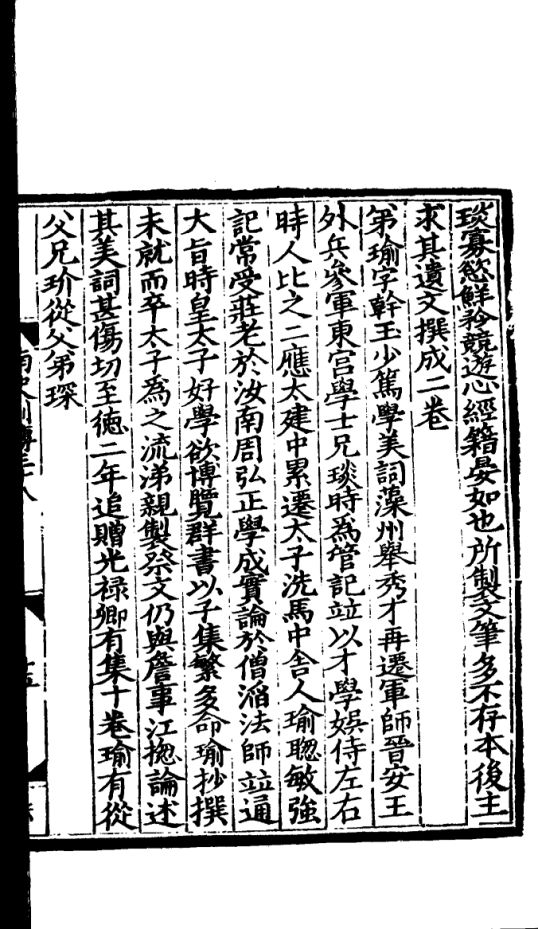 琰寡慾鮮矜競遊心經籍晏如也所製文筆多不存本後主
求其遺文撰成二卷
弟瑜字幹玉少篤學美詞藻州舉秀才再遷軍師晉安王
外兵參軍東宮學士兄琰時為管記竝以才學娛侍左右
時人比之二應太建中累遷太子洗馬中舍人瑜聰敏強
記常受莊老於汝南周弘正學成實論於僧滔法師竝通
大旨時皇太子好學欲博覽群書以子集繁多命瑜抄撰
未就而卒太子為之流涕親製祭文仍與詹事江揔論述
其美詞甚傷切至德二年追贈光禄卿有集十卷瑜有從
父兄玠從父弟琛
南史列傳三十八